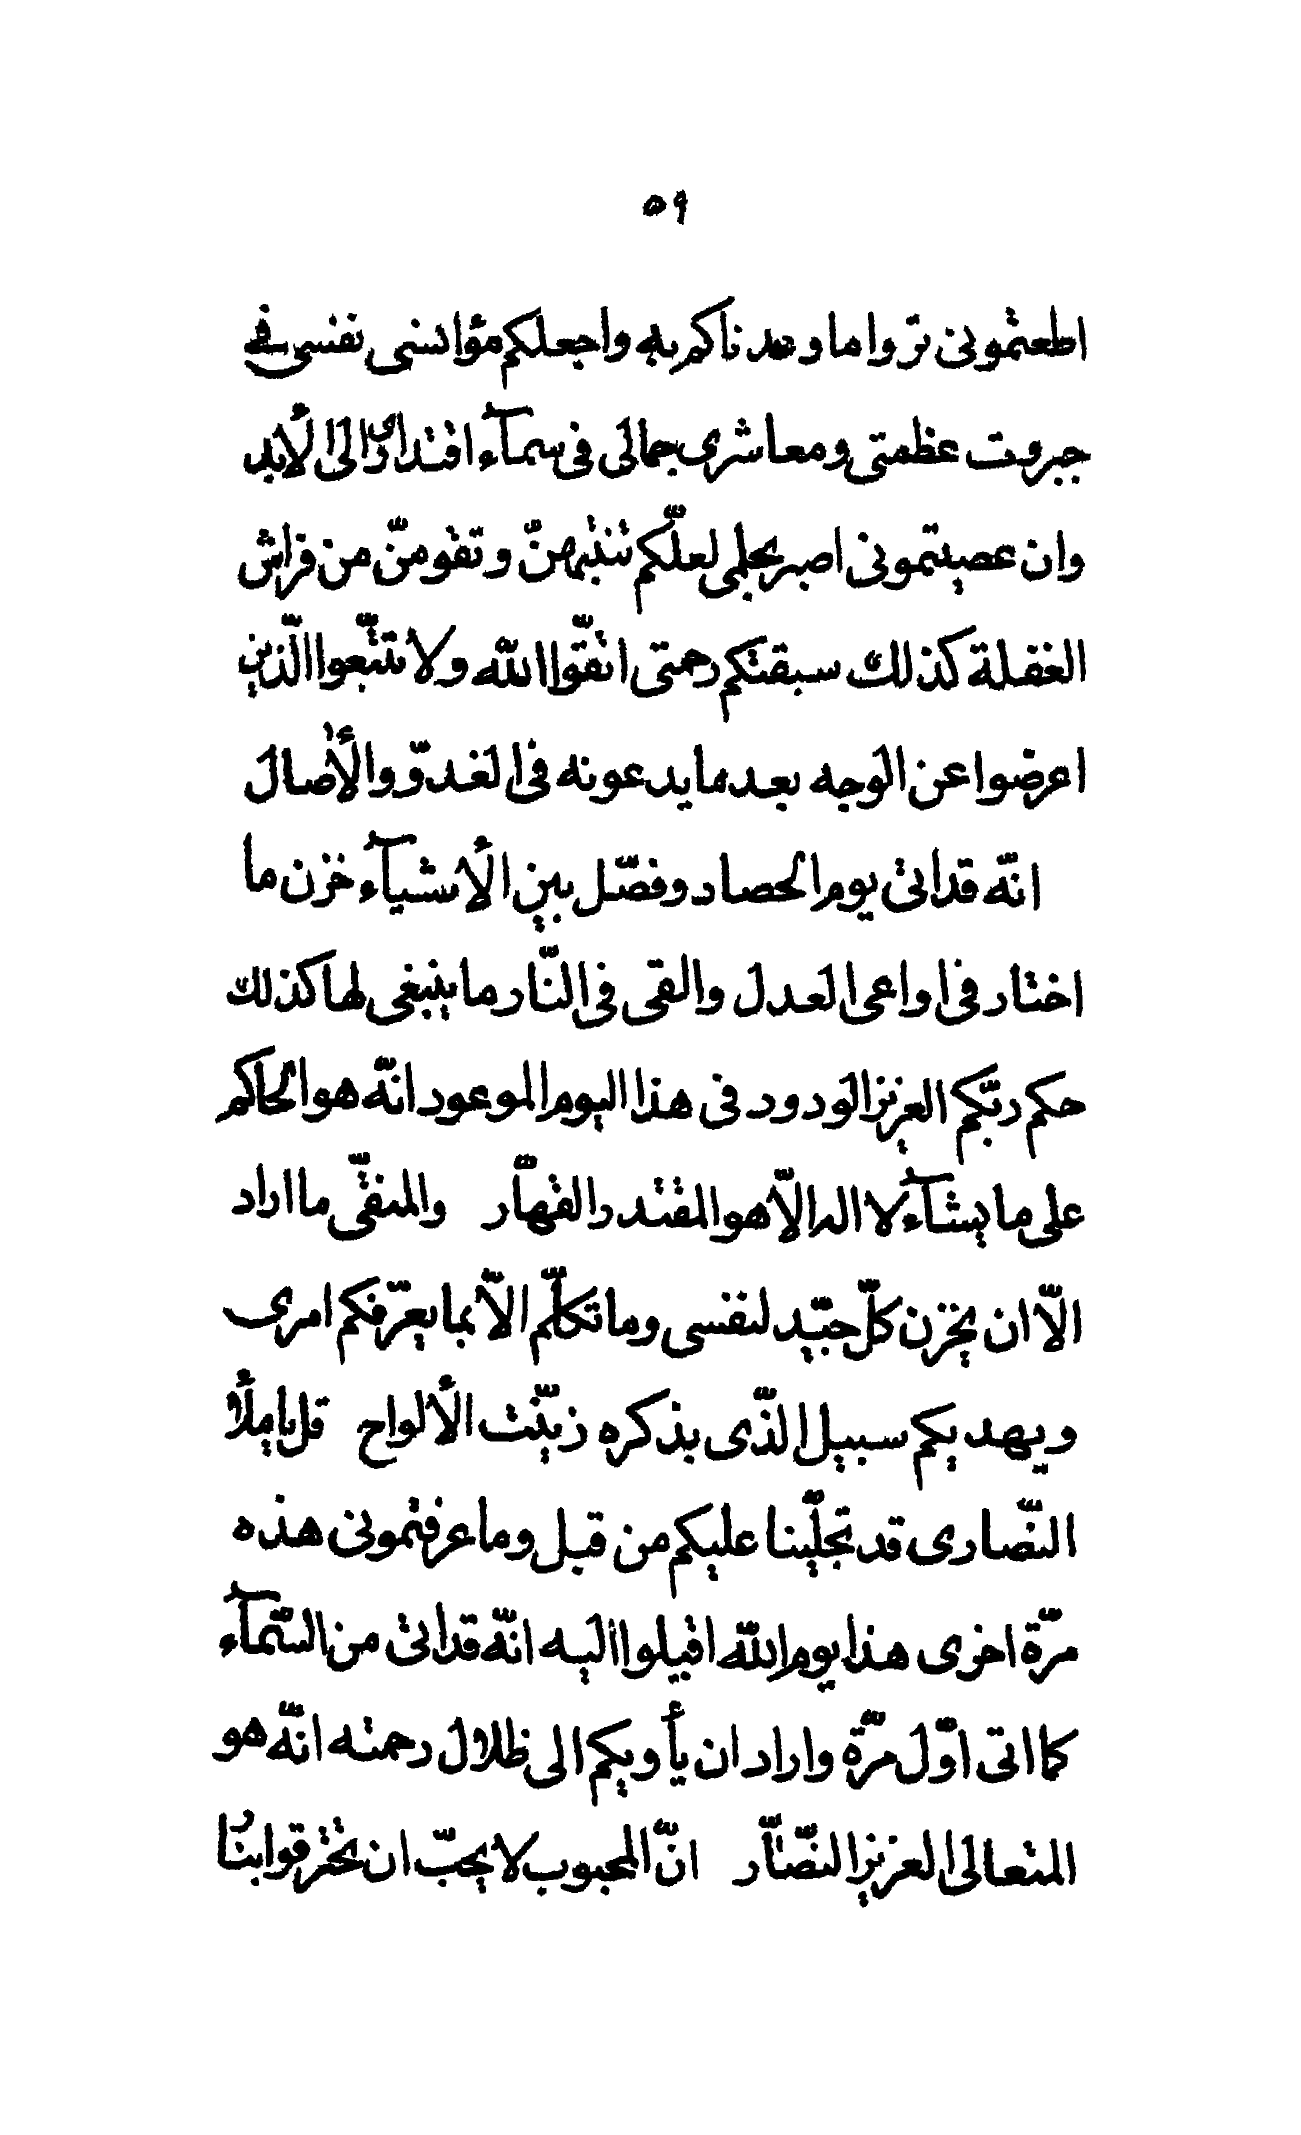 ٥٩
اطعتمونی تروا ما وعدناکم به واجعلکم مؤانسی نفسی فی
جبروت عظمتی ومعاشری جمالی فی سمآء اقتداری الی الأبد
وان عصیتمونی اصبر بحلمی لعلّکم تنتبهنّ وتقومنّ من فراش
الغفلة کذلک سبقتکم رحمتی اتّقوا الله ولا تتّبعوا الّذین
اعرضوا عن الوجه بعد ما یدعونه فی الغدوّ والأصال
انّه قد اتی یوم الحصاد وفصّل بین الأشیآء خزن ما
اختار فی اواعی العدل والقی فی النّار ما ینبغی لها کذلک
حکم ربّکم العزیز الودود فی هذا الیوم الموعود انّه هو الحاکم
علی ما یشآء لا اله الّا هو المقتدر القهّار والمنقّی ما اراد
الّا ان یخزن کلّ جیّد لنفسی وما تکلّم الّا بما یعرّفکم امری
ویهدیکم سبیل الّذی بذکره زیّنت الألواح قل یا ملأ
النّصاری قد تجلّینا علیکم من قبل وما عرفتمونی هذه
مرّة اخری هذا یوم الله اقبلوا الیه انّه قد اتی من السّمآء
کما اتی اوّل مرّة واراد ان یأویکم الی ظلال رحمته انّه هو
المتعالی العزیز النصّار انّ المحبوب لا یحبّ ان تحترقوا بنار